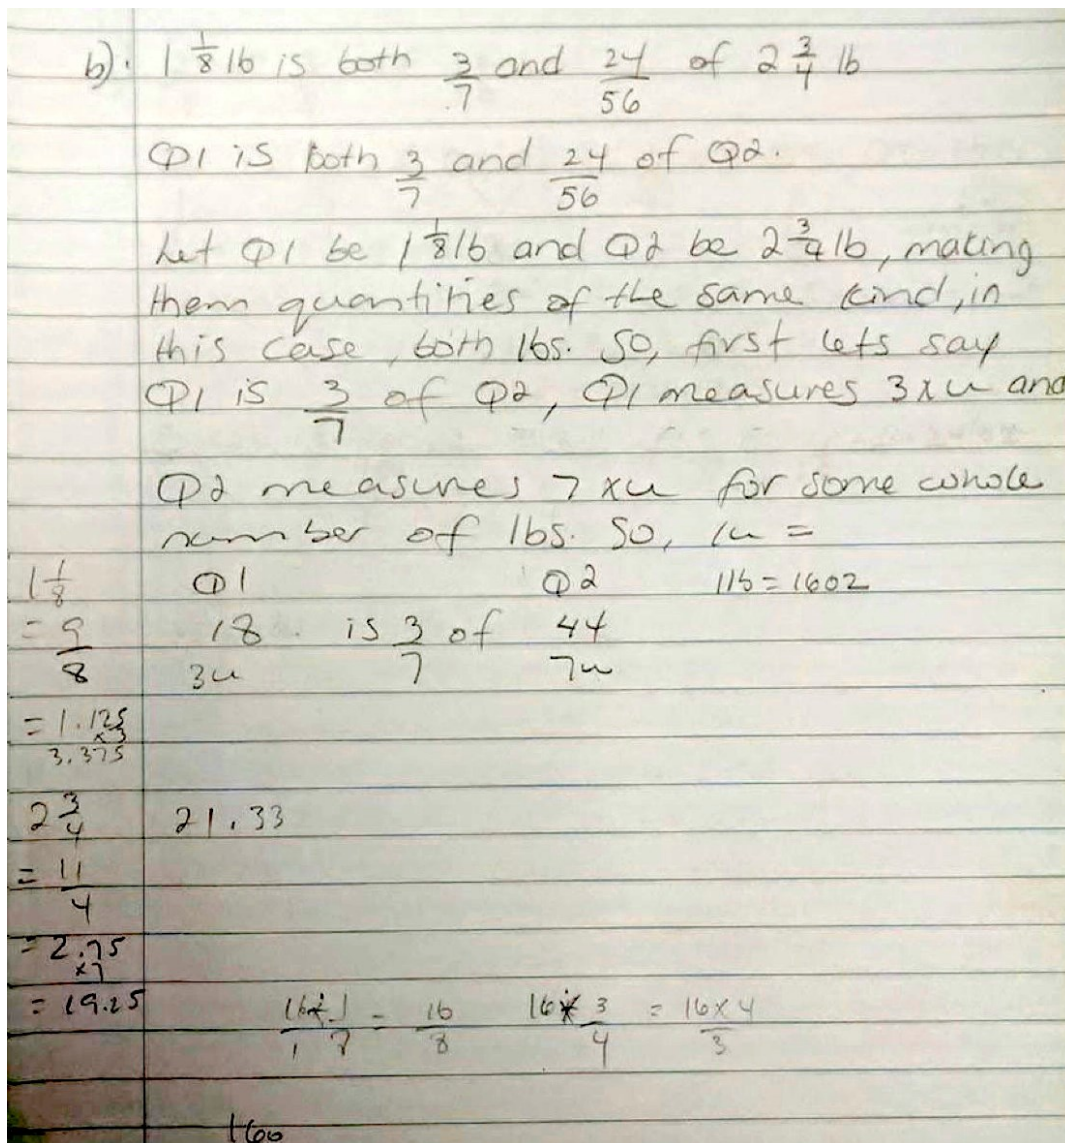 b). 1 1/8 lb is both 3/7 and 24/56 of 2 3/4 lb
Q1 is both 3/7 and 24/56 of Q2.
Let Q1 be 1 1/8 lb and Q2 be 2 3/4 lb, making
them quantities of the same kind, in
this case, both lbs. So, first lets say
Q1 is 3/7 of Q2, Q1 measures 3xu and
Q2 measures 7xu for some whole
number of lbs. So, 1u =
1 1/8 Q1 Q2 1lb = 16oz
= 9/8 18 is 3/7 of 44
3u 7u
= 1.125
x3
3.375
2 3/4 21.33
= 11/4
= 2.75
x7
= 19.25
16/1 ÷ 1/8 = 16/8 16 ÷ 3/4 = 16x4/3